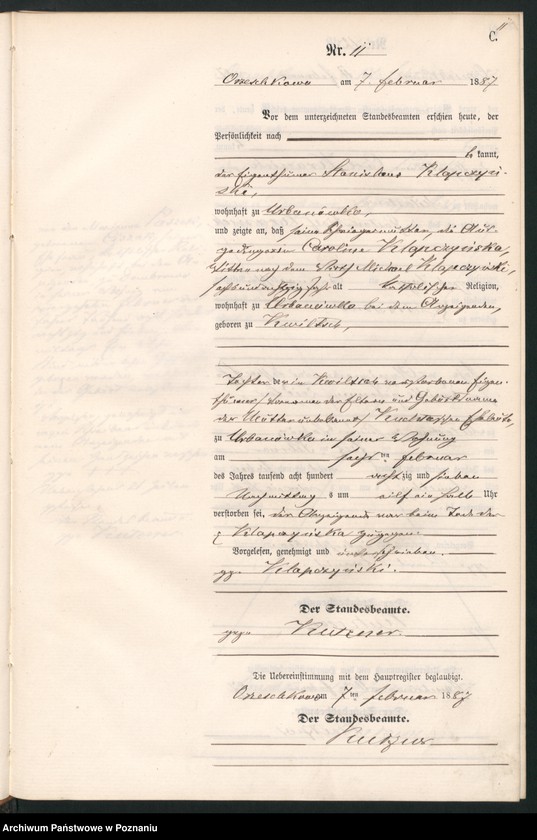 11
C.
Nr. 11
Orzeschkowo am 7. Februar 1887
Vor dem unterzeichneten Standesbeamten erschien heute, der
Persönlichkeit nach
be kannt,
der Eigenthümer Stanislaus Klapczyń-
ski,
wohnhaft zu Urbanówko,
und zeigte an, daß seine Schwiegermutter, die
Caroline Klapczyńska,
Wittwe nach dem Michael Klapczyński,
Jahre alt katholischer Religion,
wohnhaft zu Urbanówko bei dem Anzeigenden,
geboren zu Kwiltsch,
Tochter der in Kwiltsch verstorbenen Eigen-
thümer Vorname der Eltern und Geburtsname
der Mutter unbekannt Eheleute,
zu Urbanówko in seiner Wohnung
am sechsten Februar
des Jahres tausend acht hundert achtzig und sieben
Nachmittags um eilf ein halb Uhr
verstorben sei, der Anzeigende war beim Tode der
Klapczyńska zugegen.
Vorgelesen, genehmigt und unterschrieben.
gez. Klapczyński.
Der Standesbeamte.
gez. Kutzner
Die Uebereinstimmung mit dem Hauptregister beglaubigt.
Orzeschkowo am 7ten Februar 1887
Der Standesbeamte.
Kutzner
Archiwum Państwowe w Poznaniu